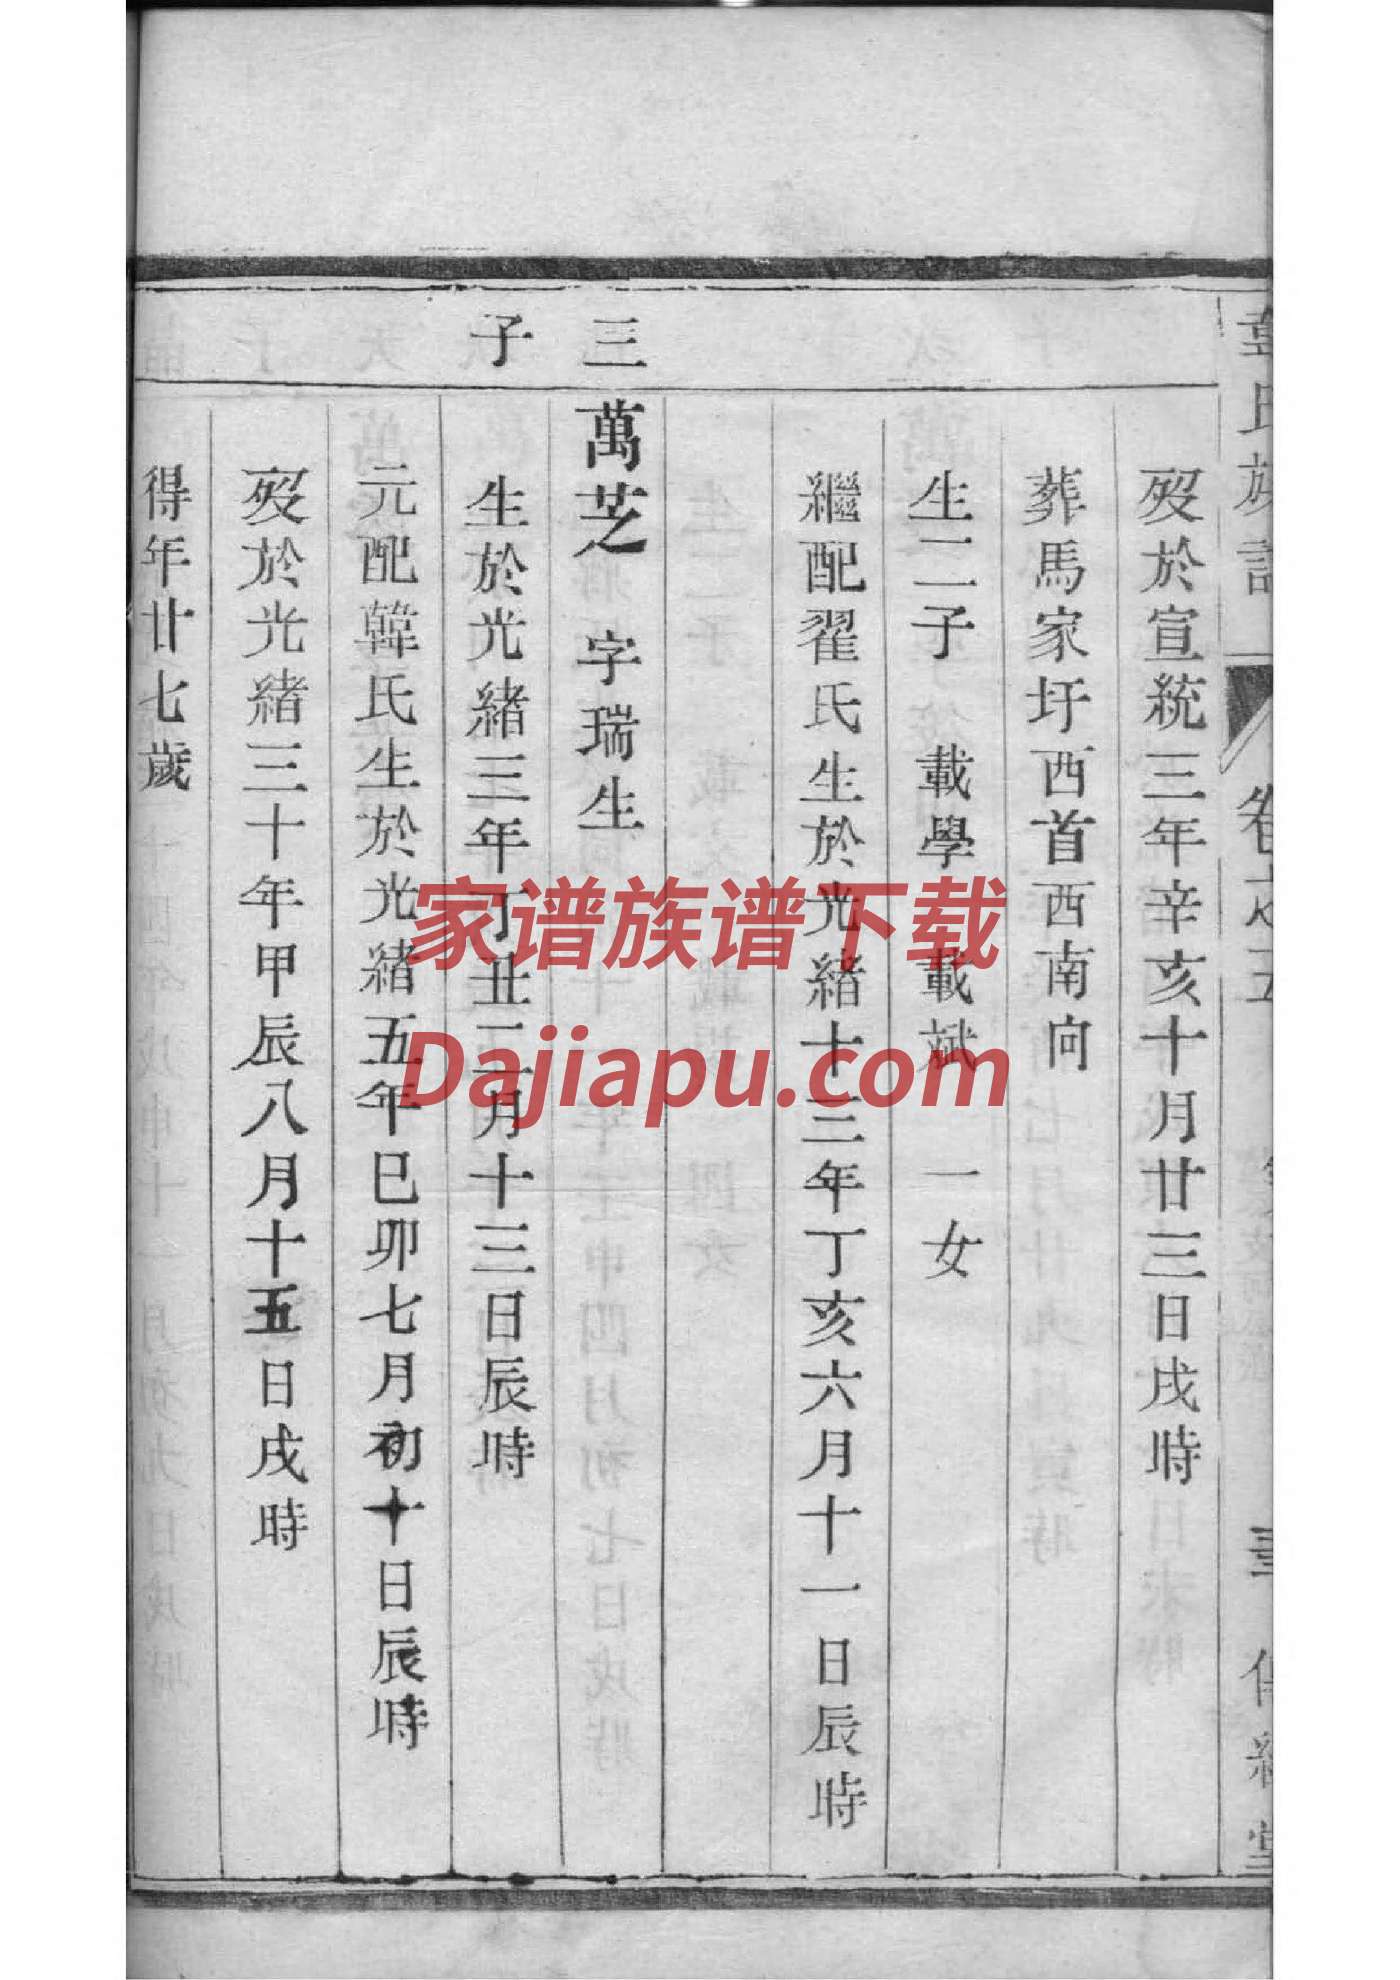 歿於宣統三年辛亥十月廿三日戌時
葬馬家圩西首西南向
生二子 載學 載斌 一女
繼配翟氏生於光緒十三年丁亥六月十一日辰時
三子
萬芝 字瑞生
生於光緒三年丁丑二月十三日辰時
元配韓氏生於光緒五年巳卯七月初十日辰時
歿於光緒三十年甲辰八月十五日戌時
得年廿七歲
家谱族谱下载
Dajiapu.com